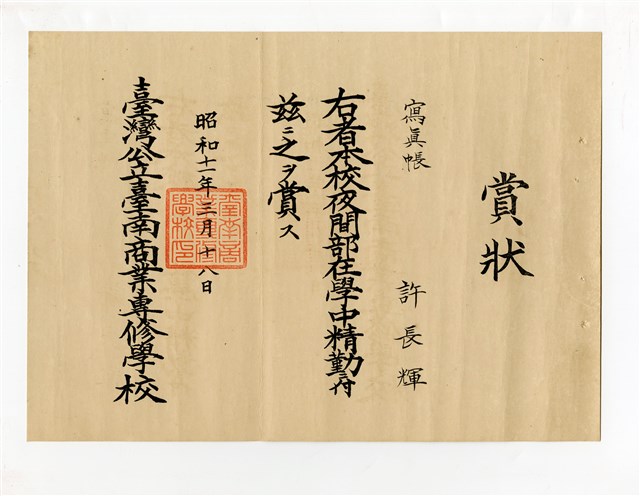 賞狀
寫眞帳
許長輝
右者本校夜間部在學中精勤ニ付
玆ニ之ヲ賞ス
昭和十一年三月十八日
臺灣公立臺南商業專修學校